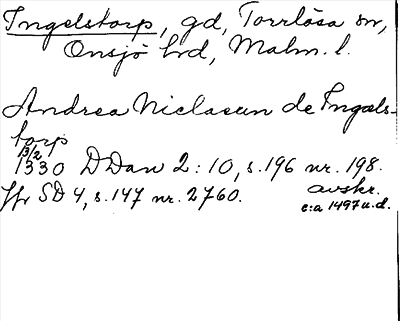 Ingelstorp, gd, Torrlösa sn,
Onsjö hd, Malm. l.
Andrea Niclasun de Ingæls-
torp
13/2
1330 DDan 2:10, s. 196 nr. 198.
Jfr SD 4, s. 147 nr. 2760. avskr.
c:a 1497 u.d.